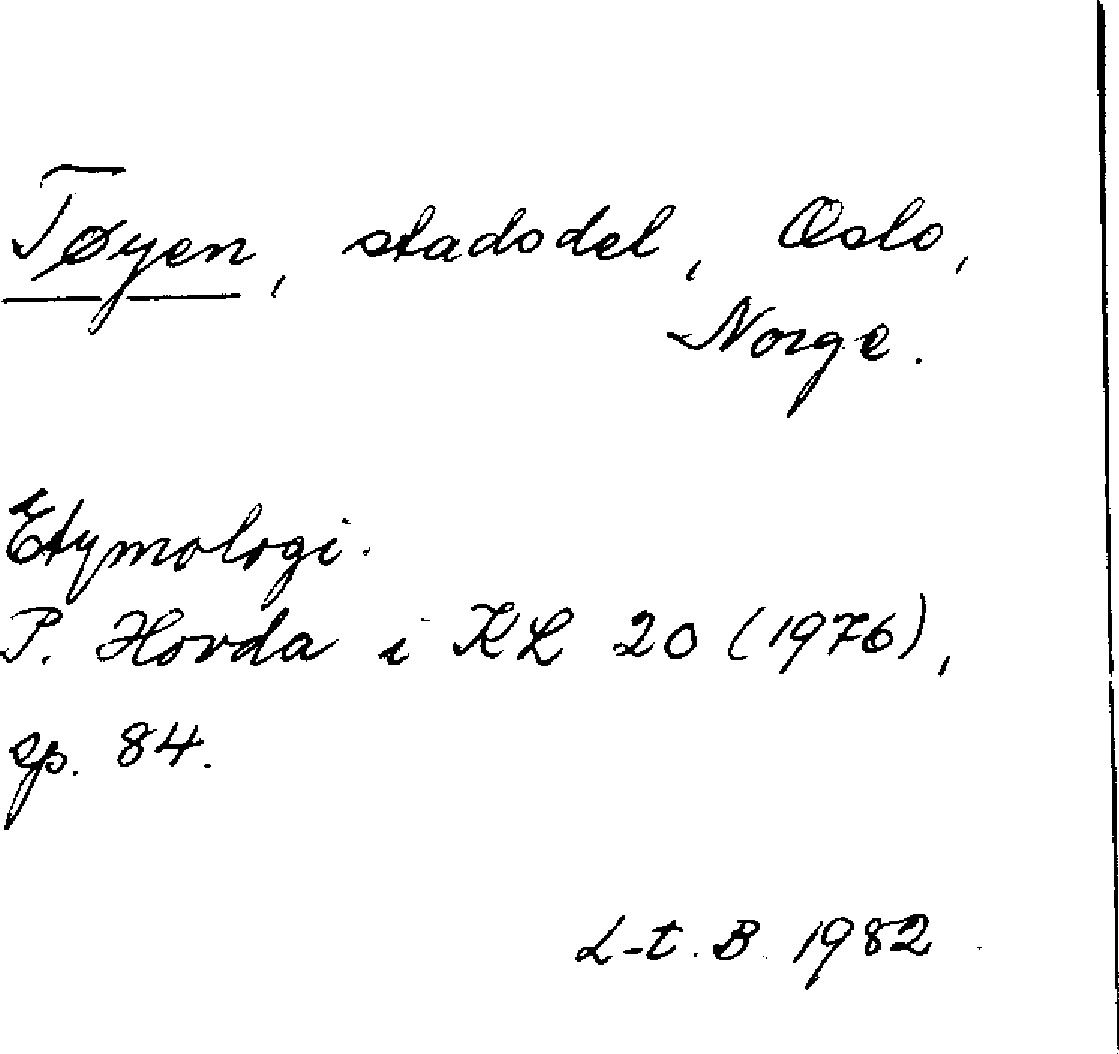 Tøyen, stadsdel, Oslo,
Norge.
Etymologi.
P. Hovda i KL 20 (1976),
sp. 84.
L-t. B. 1982